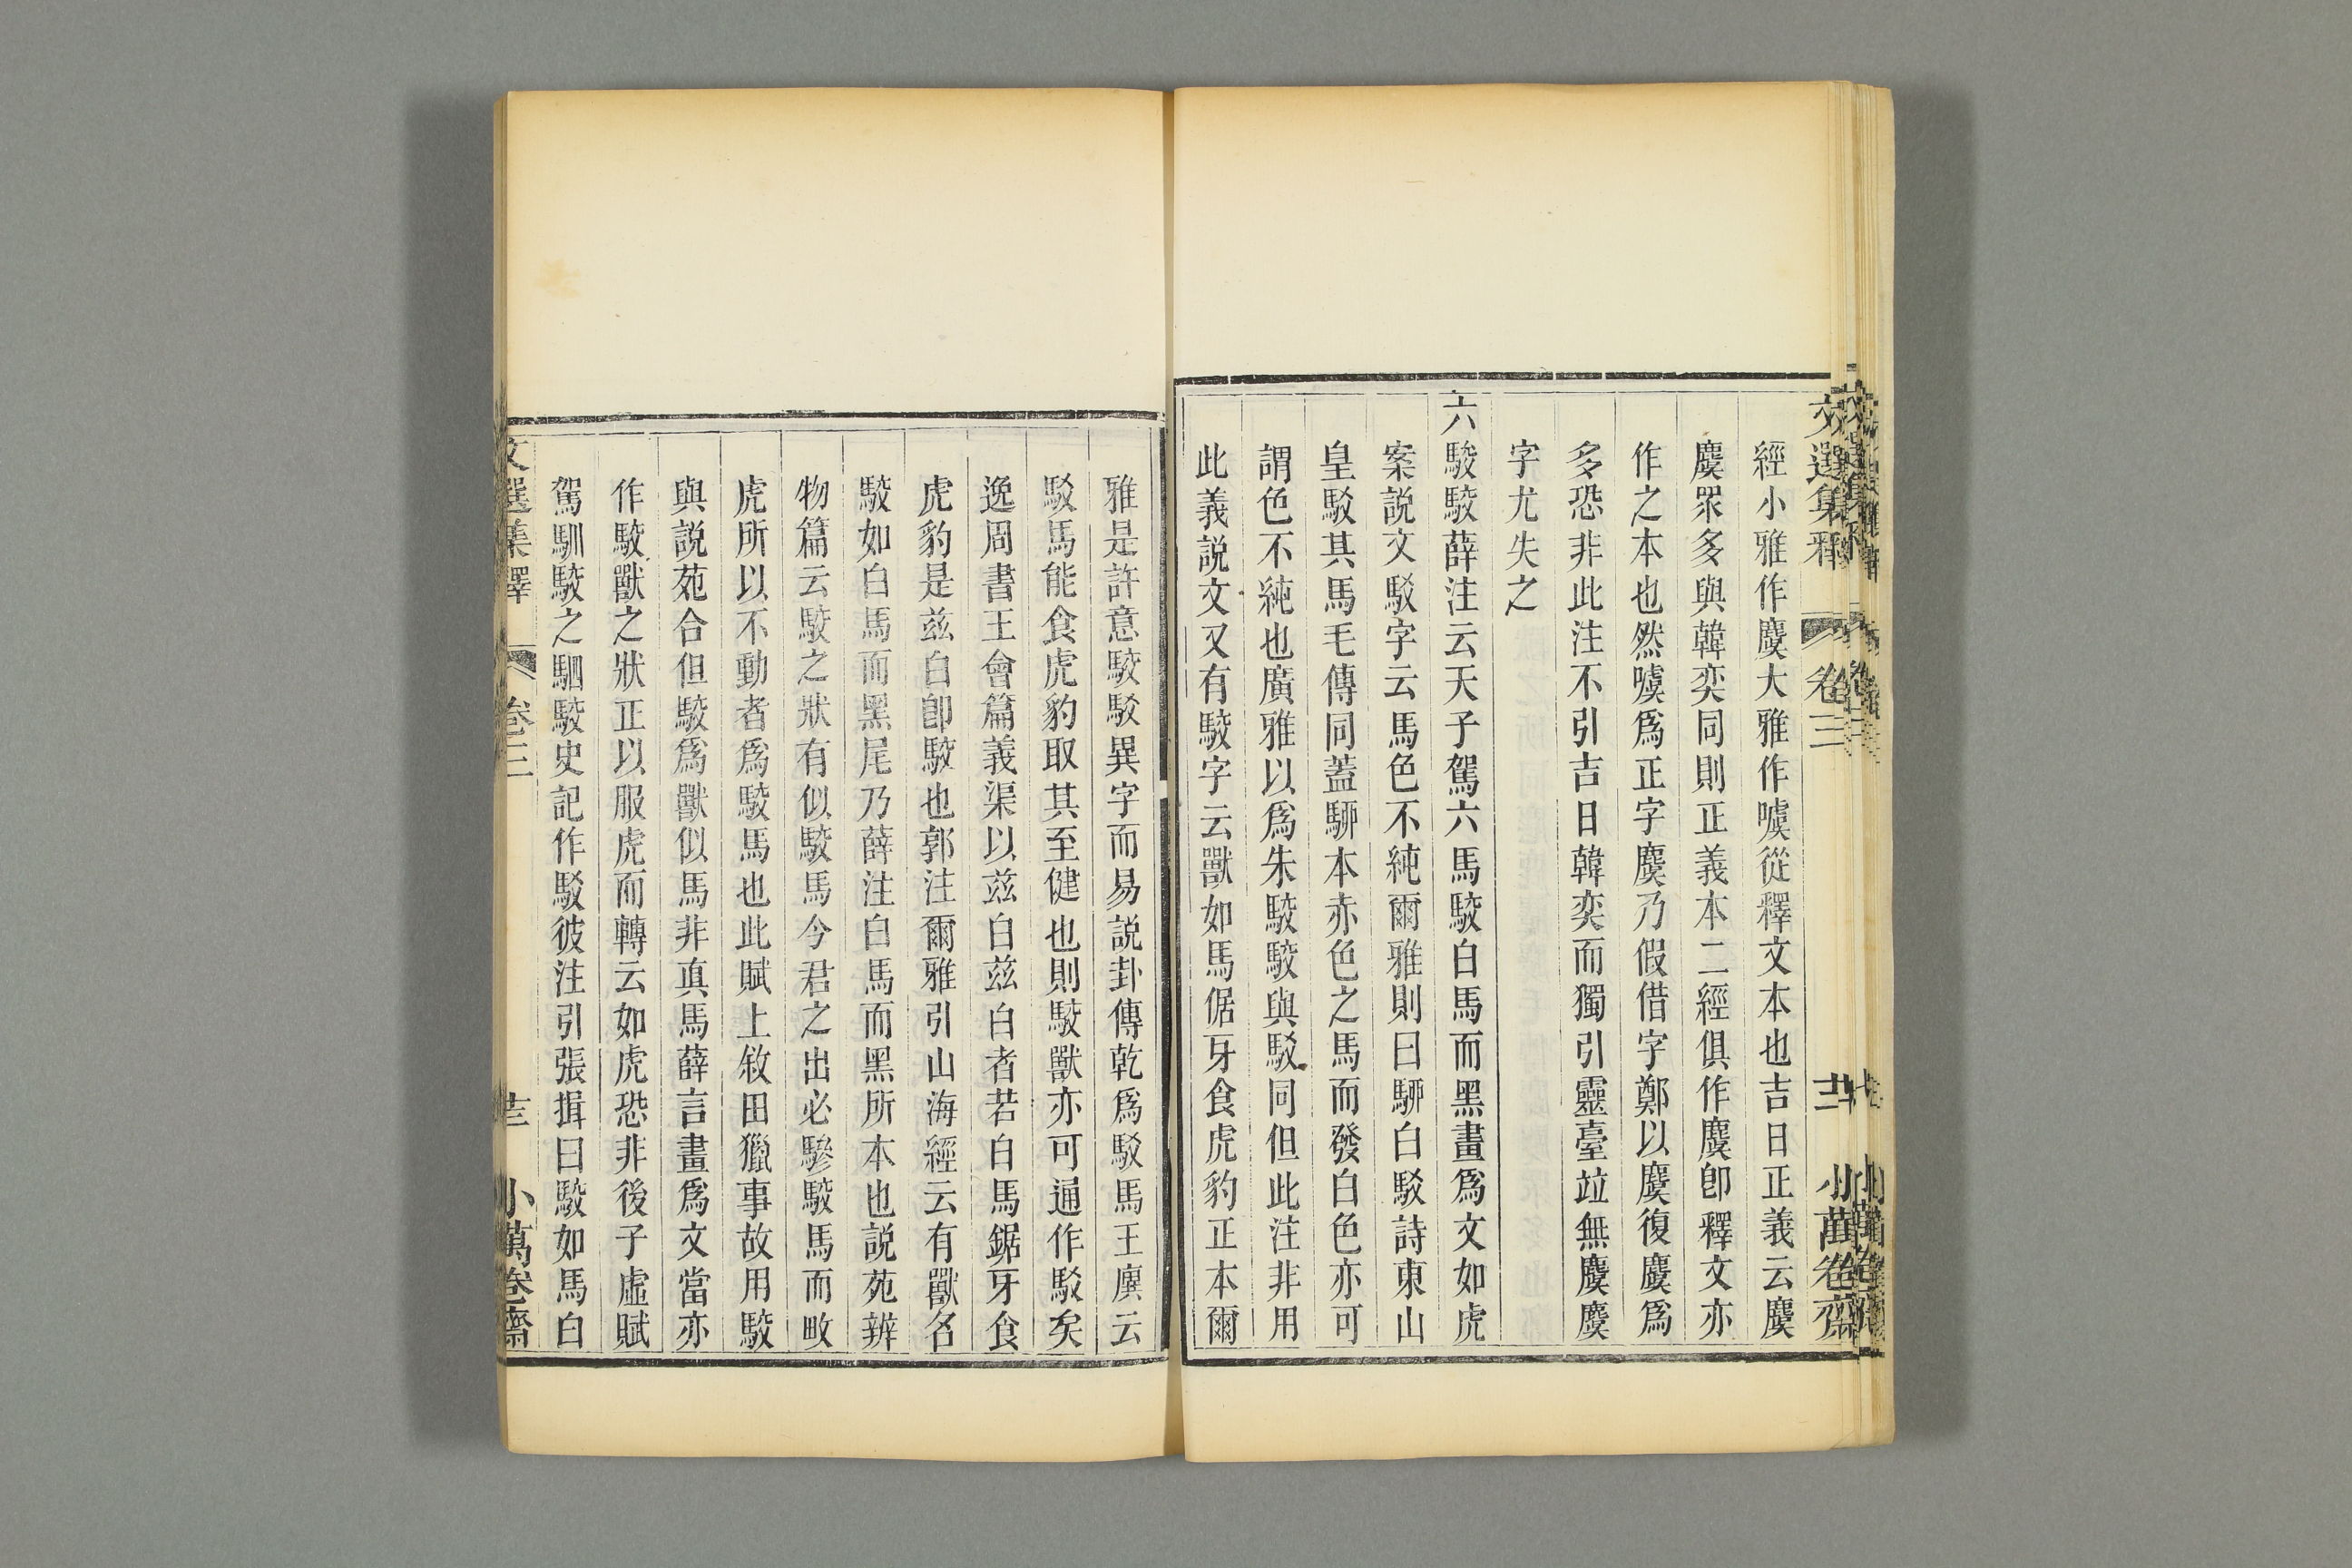 文選集釋 卷三 十二 小萬卷齋
經小雅作麌大雅作噳從釋文本也吉日正義云麌
麌眾多與韓奕同則正義本二經俱作麌卽釋文亦
作之本也然噳爲正字麌乃假借字鄭以麌復麌爲
多恐非此注不引吉日韓奕而獨引靈臺竝無麌麌
字尤失之
六駮駮薛注云天子駕六馬駮白馬而黑畫爲文如虎
案説文駁字云馬色不純爾雅則曰駵白駁詩東山
皇駁其馬毛傳同蓋駵本赤色之馬而發白色亦可
謂色不純也廣雅以爲朱駮駮與駁同但此注非用
此義説文又有駮字云獸如馬倨牙食虎豹正本爾
雅是許意駮駁異字而易説卦傳乾爲駁馬王廙云
駁馬能食虎豹取其至健也則駮獸亦可通作駁矣
逸周書王會篇義渠以茲白茲白者若白馬鋸牙食
虎豹是茲白卽駮也郭注爾雅引山海經云有獸名
駮如白馬而黑尾乃薛注白馬而黑所本也説苑辨
物篇云駮之狀有似駮馬今君之出必驂駮馬而畋
虎所以不動者爲駮馬也此賦上敘田獵事故用駮
與説苑合但駮爲獸似馬非眞馬薛言畫爲文當亦
作駮獸之狀正以服虎而轉云如虎恐非後子虛賦
駕馴駮之駟駮史記作駁彼注引張揖曰駮如馬白
文選集釋 卷三 小萬卷齋